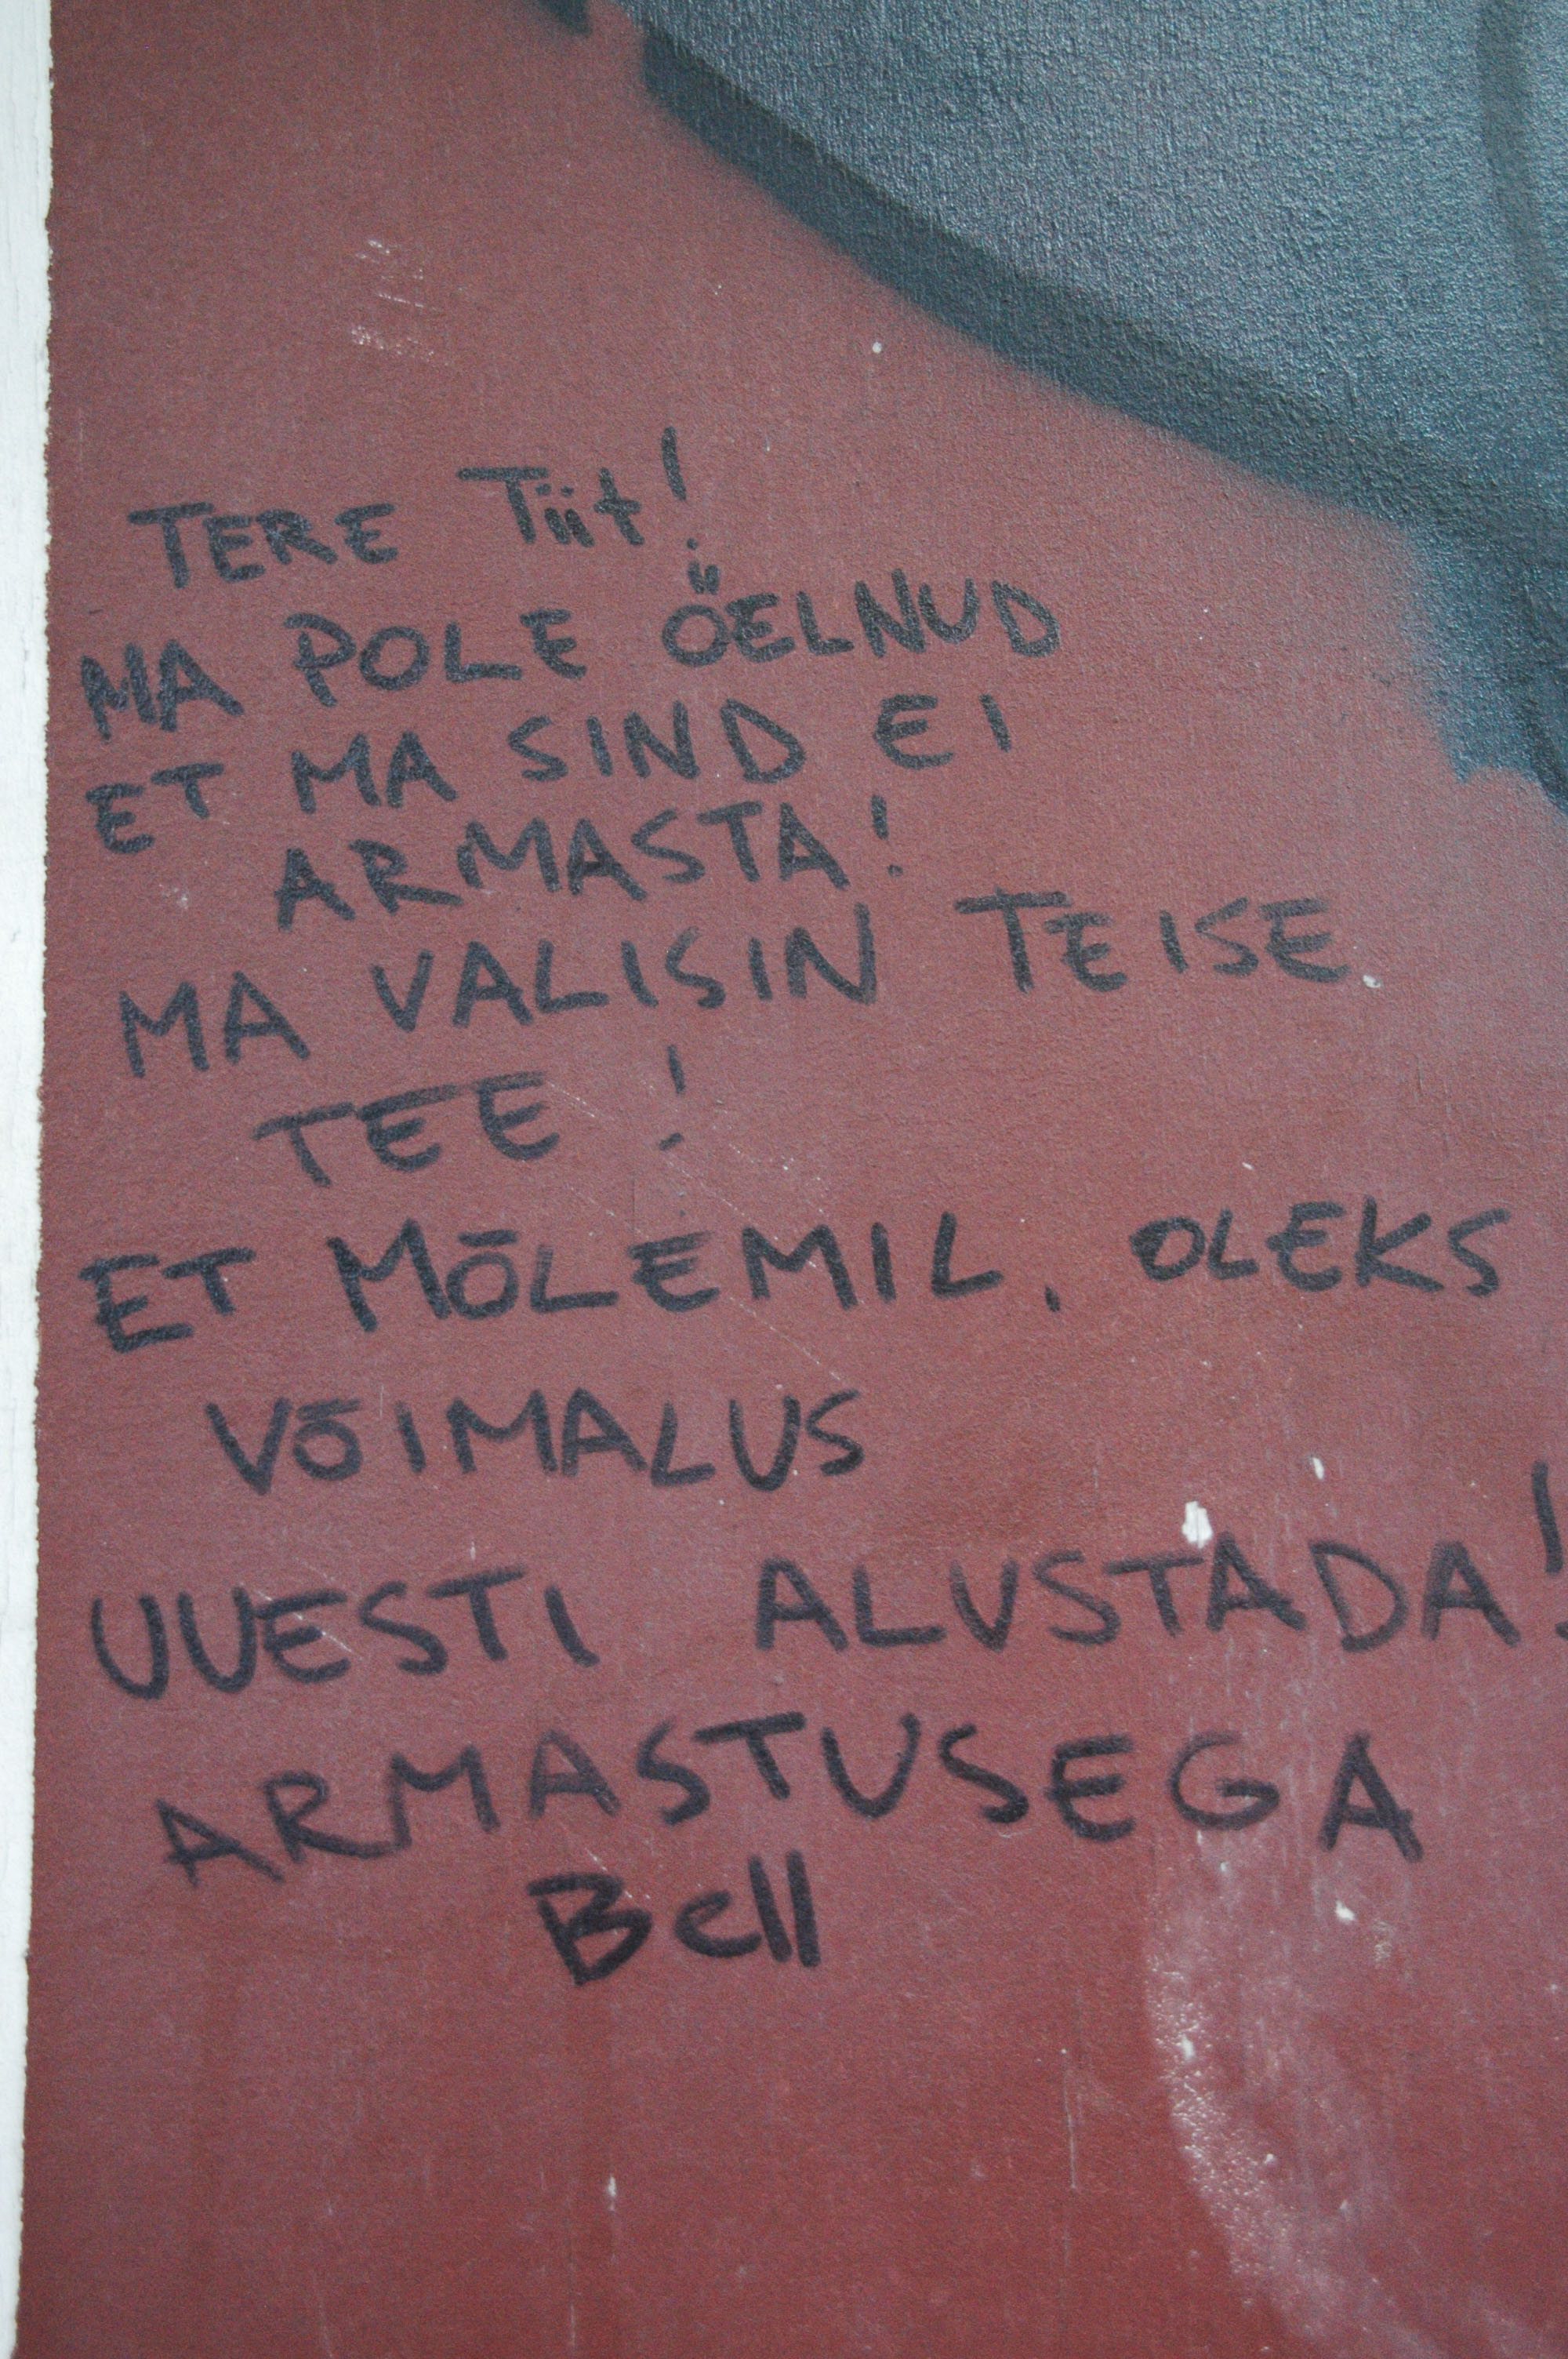 TERE Tiit!
MA POLE ÖELNUD
ET MA SIND EI
ARMASTA!
MA VALISIN TEISE
TEE!
ET MŌLEMIL, OLEKS
VŌIMALUS
UUESTI ALUSTADA!
ARMASTUSEGA
Bell